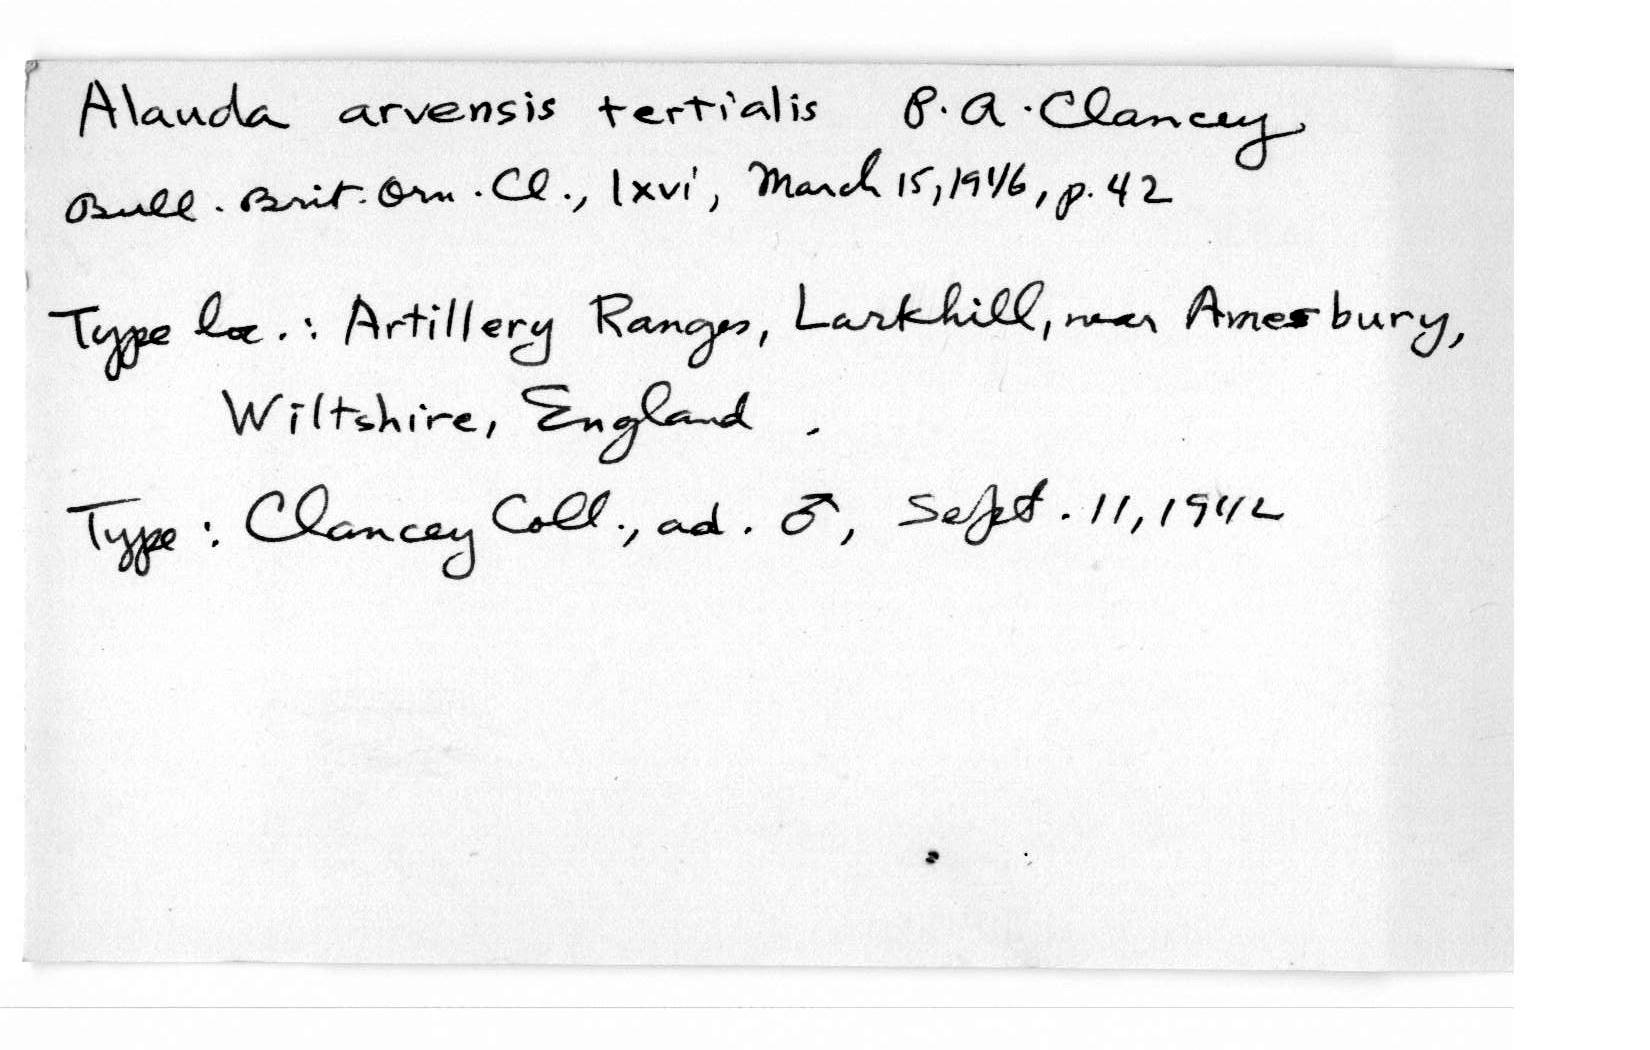 Alauda arvensis tertialis P.A. Clancey
Bull. Brit. Orn. Cl., lxvi, March 15, 1946, p. 42
Type loc.: Artillery Ranges, Larkhill, near Amesbury,
Wiltshire, England.
Type: Clancey Coll., ad. ♂, Sept. 11, 1942